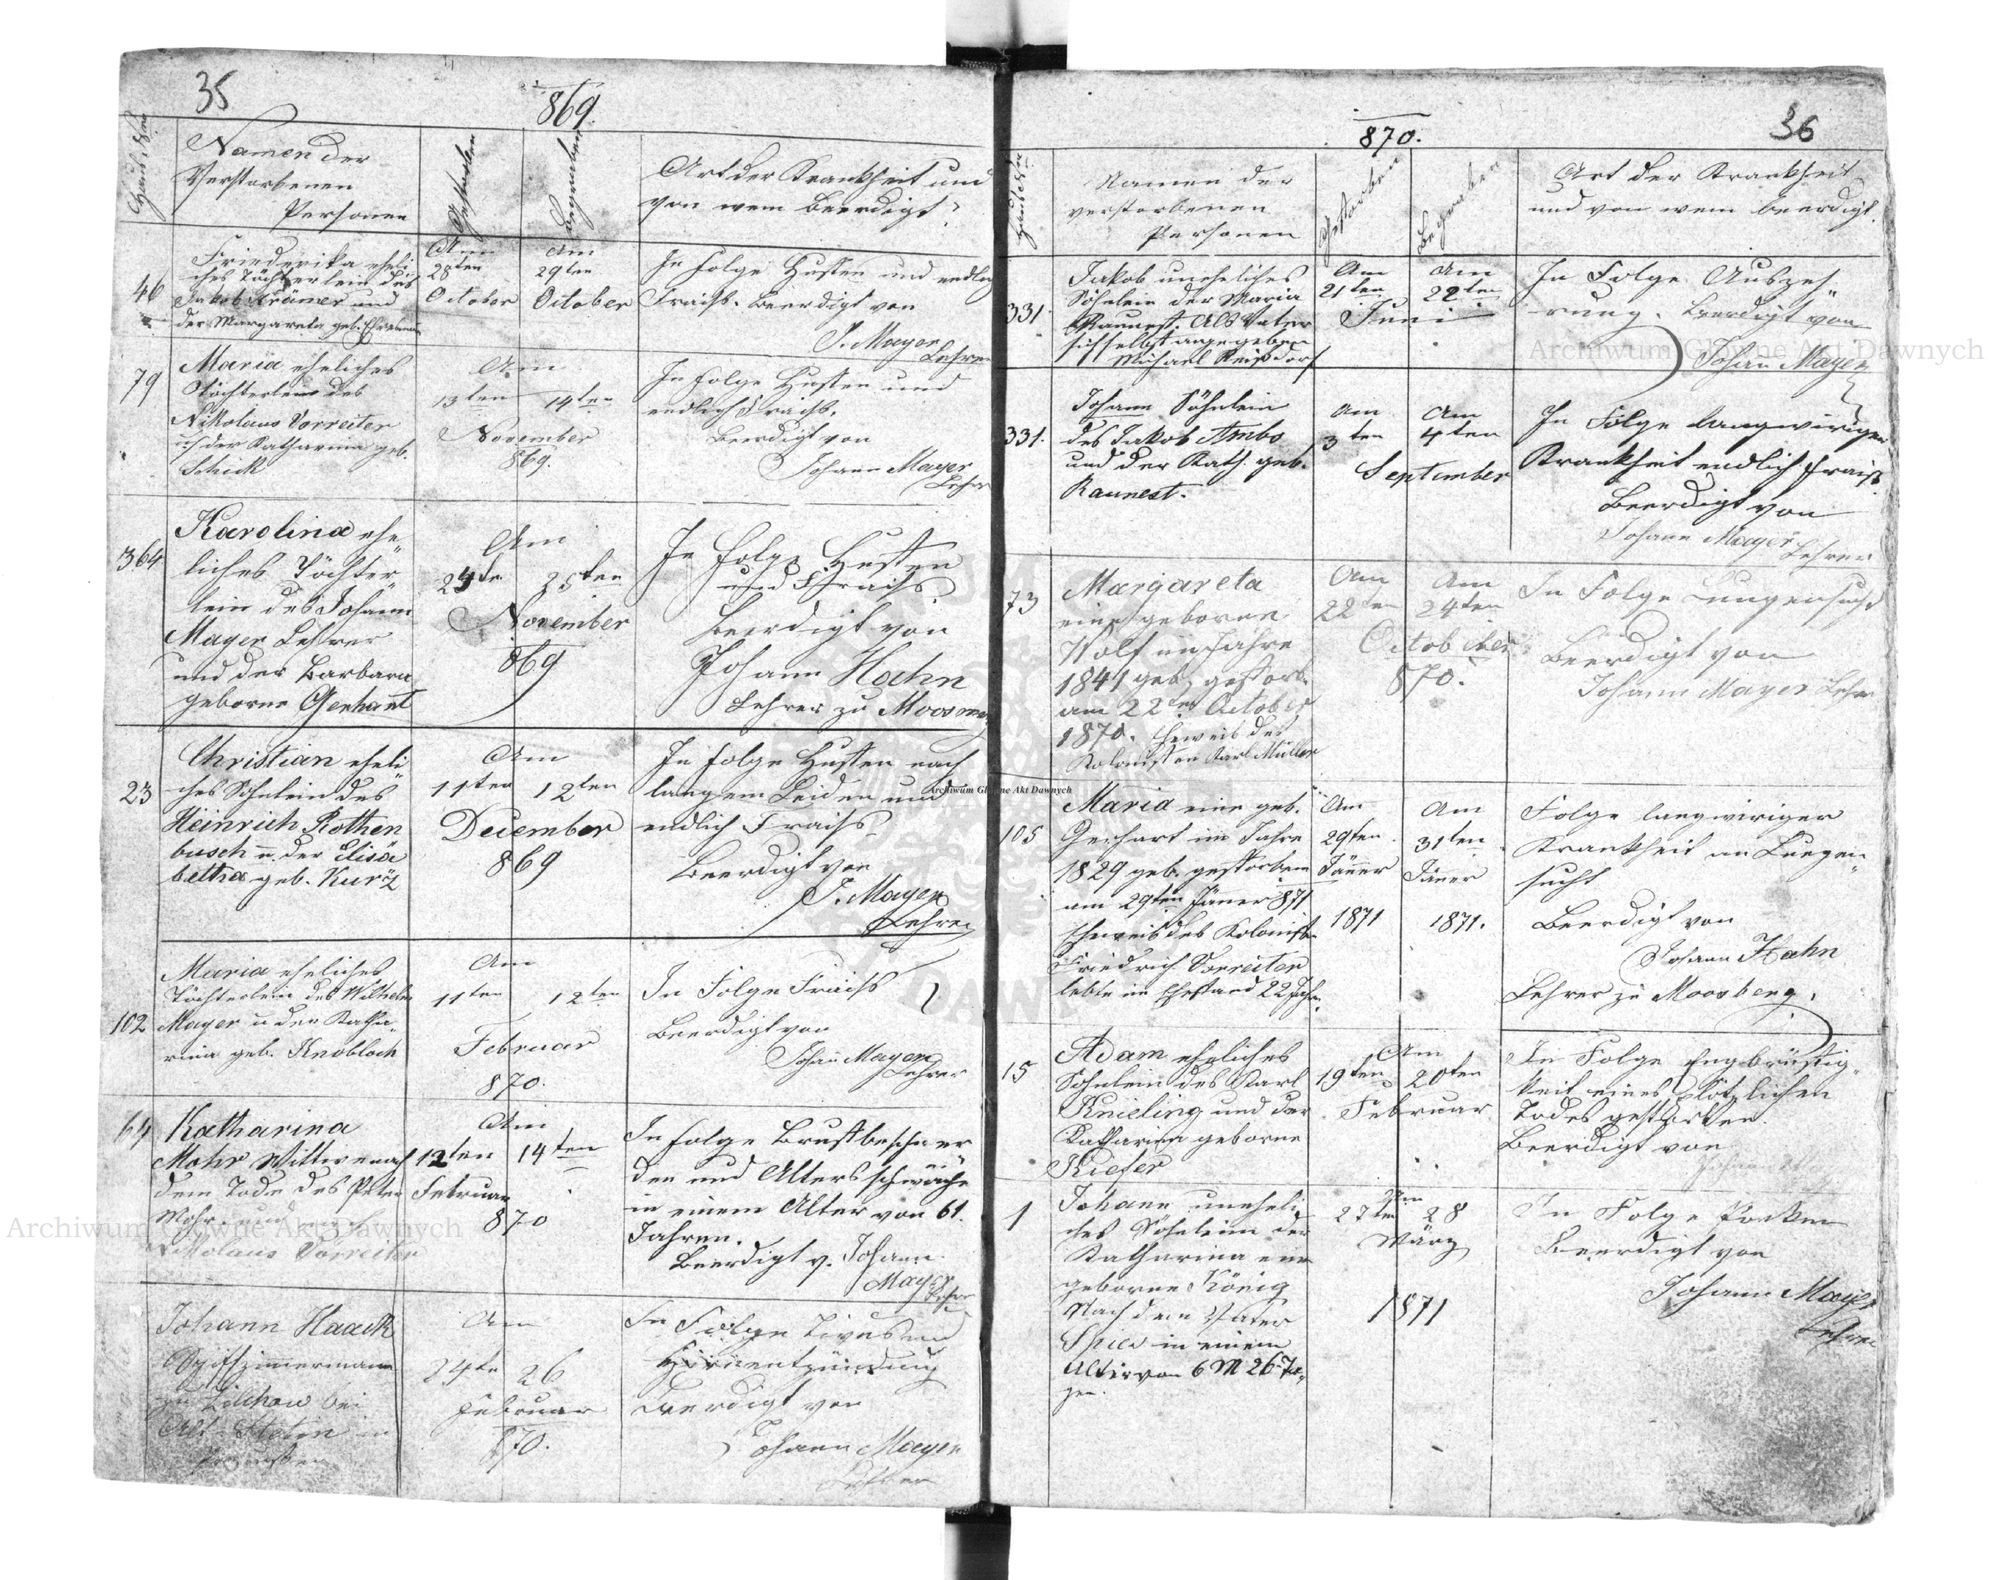 35
869.
Haus Nro
Namen der
Verstorbenen
Personen
Gestorben
Begraben
Art der Krankheit und
von wem beerdigt?
46
Friederika eheli
ches Töchterlein des
Jakob Krämer und
der Margareta geb.
Am
28ten
October
Am
29ten
October
In Folge Husten und endlich
Fraiß. Beerdigt von
J. Mayer
Lehrer
79
Maria eheliches
Töchterlein des
Nikolaus Vorreiter
u der Katharina geb.
Schick
Am
13ten 14ten
November
869.
In Folge Husten und
endlich Fraiß.
Beerdigt von
Johann Mayer
Lehrer
364
Karolina ehe
liches Töchter
lein des Johann
Mayer Lehrer
und der Barbara
geborne Gerhart
Am
24te 25ten
November
869
In Folge Husten
und Fraiß
Beerdigt von
Johann Hahn
Lehrer zu Moosberg
23
Christian eheli
ches Söhnlein des
Heinrich Rothen
busch u. der Elisa
betha geb. Kurtz
Am
11ten 12ten
December
869
In Folge Husten nach
langem Leiden und
endlich Fraiß
Beerdigt von
J. Mayer
Lehrer
102
Maria eheliches
Töchterlein des Wilhelm
Mayer u der Katha
rina geb. Knobloch
Am
11ten 12ten
Februar
870.
In Folge Fraiß
Beerdigt von
Johann Mayer
Lehrer
64
Katharina
Mohr Wittwe nach
dem Tode des Peter
Mohr
Nikolaus Vorreiter
Am
12ten 14ten
Februar
870
In Folge Brustbeschwer
den und Altersschwäche
in einem Alter von 61.
Jahren.
Beerdigt v. Johann
Mayer
Lehrer
Johann Haack
Schiffzimmermann
zu Zülchow bei
Alt-Stetin in
Preußen
Am
24te 26
Februar
870.
In Folge Tivus und
Hirnentzündung
Beerdigt von
Johann Mayer
Lehrer
36
870.
Haus Nro
Namen der
verstorbenen
Personen
Gestorben
Begraben
Art der Krankheit
und von wem beerdigt.
331
Jakob uneheliches
Söhnlein der Maria
Raunest. Als Vater
sich selbst angegeben
Michael Reißdorf
Am
21ten
Am
22ten
Juni
In Folge Auszeh
rung. Beerdigt von
Johann Mayer
331.
Johann Söhnlein
des Jakob Ambo
und der Kath. geb.
Raunest.
Am
3ten
Am
4ten
September
In Folge langwieriger
Krankheit endlich Fraiß.
Beerdigt von
Johann Mayer
Lehrer
73
Margareta
eine geborne
Wolf im Jahre
1841 geb. gestorb.
am 22ten October
1870. Eheweib des
Kolonisten Karl Müller
Am
22ten
Am
24ten
October
870.
In Folge Lungensucht
Beerdigt von
Johann Mayer Lehrer
105
Maria eine geb.
Gerhart im Jahre
1829 geb. gestorben
am 29ten Jänner 871
Eheweib des Kolonisten
Friedrich Vorreiter
lebte im Ehestand 22 Jahre
Am
29ten
Jänner
1871
Am
31ten
Jäner
1871.
Folge langwieriger
Krankheit an Lungen
sucht
Beerdigt von
Johann Hahn
Lehrer zu Moosberg.
15
Adam eheliches
Söhnlein des Karl
Knieling und der
Katharina geborne
Kiefer
Am
19ten 20ten
Februar
In Folge Engbrüstig
keit eines plötzlichen
Todes gestorben
Beerdigt von
1
Johann uneheli
ches Söhnlein der
Katharina eine
geborne König
Nach dem Vater
in einem
Alter von 6 M 26 Ta
gen.
Am
27ten 28
März
1871
In Folge Pocken
Beerdigt von
Johann Mayer
Lehrer
Archiwum Główne Akt Dawnych
Archiwum Główne Akt Dawnych
Archiwum Główne Akt Dawnych